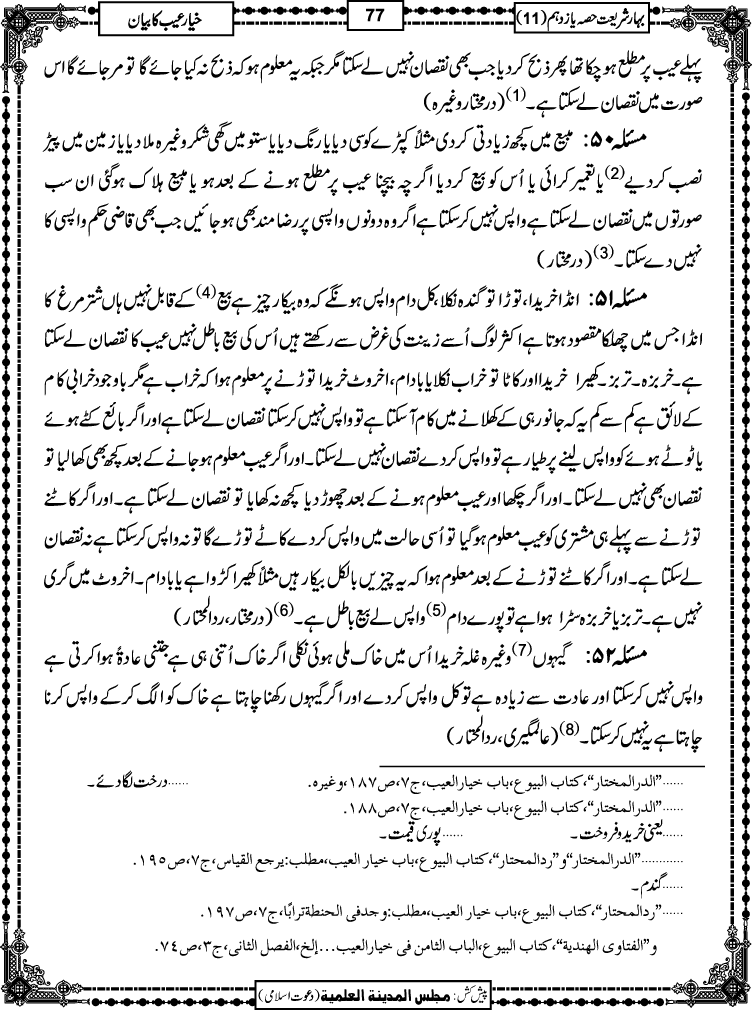 بہارِ شریعت حصہ یازدہم (11)
77
خیار عیب کا بیان
پہلے عیب پر مطلع ہوچکا تھا پھر ذبح کردیا جب بھی نقصان نہیں لے سکتا مگر جبکہ یہ معلوم ہو کہ ذبح نہ کیا جائے گا تو مر جائے گا اس
صورت میں نقصان لے سکتا ہے۔(1) (درمختار وغیرہ)
مسئلہ ۵۰: مبیع میں کچھ زیادتی کردی مثلاً کپڑے کو سی دیا یا رنگ دیا یا ستو میں گھی شکر وغیرہ ملا دیا یا زمین میں پیڑ
نصب کردیے(2) یا تعمیر کرائی یا اُس کو بیع کردیا اگرچہ بیچنا عیب پر مطلع ہونے کے بعد ہو یا مبیع ہلاک ہوگئی ان سب
صورتوں میں نقصان لے سکتا ہے واپس نہیں کرسکتا ہے اگر وہ دونوں واپسی پر رضا مند بھی ہوجائیں جب بھی قاضی حکم واپسی کا
نہیں دے سکتا۔(3) (درمختار)
مسئلہ ۵۱: انڈا خریدا، توڑا تو گندہ نکلا، کل دام واپس ہونگے کہ وہ بیکار چیز ہے بیع(4) کے قابل نہیں ہاں شتر مرغ کا
انڈا جس میں چھلکا مقصود ہوتا ہے اکثر لوگ اُسے زینت کی غرض سے رکھتے ہیں اُس کی بیع باطل نہیں عیب کا نقصان لے سکتا
ہے۔ خربزہ۔ تربز۔ کھیرا خریدا اور کاٹا تو خراب نکلا یا بادام، اخروٹ خریدا توڑنے پر معلوم ہوا کہ خراب ہے مگر باوجود خرابی کام
کے لائق ہے کم سے کم یہ کہ جانور ہی کے کھلانے میں کام آسکتا ہے تو واپس نہیں کرسکتا نقصان لے سکتا ہے اور اگر بائع کٹے ہوئے
یا ٹوٹے ہوئے کو واپس لینے پر طیار ہے تو واپس کردے نقصان نہیں لے سکتا۔ اور اگر عیب معلوم ہوجانے کے بعد کچھ بھی کھا لیا تو
نقصان بھی نہیں لے سکتا۔ اور اگر چکھا اور عیب معلوم ہونے کے بعد چھوڑ دیا کچھ نہ کھایا تو نقصان لے سکتا ہے۔ اور اگر کاٹنے
توڑنے سے پہلے ہی مشتری کو عیب معلوم ہوگیا تو اُسی حالت میں واپس کردے کاٹے توڑے گا تو نہ واپس کرسکتا ہے نہ نقصان
لے سکتا ہے۔ اور اگر کاٹنے توڑنے کے بعد معلوم ہوا کہ یہ چیزیں بالکل بیکار ہیں مثلاً کھیرا کڑوا ہے یا بادام۔ اخروٹ میں گری
نہیں ہے۔ تربز یا خربزہ سڑا ہوا ہے تو پورے دام(5) واپس لے بیع باطل ہے۔(6) (درمختار، ردالمحتار)
مسئلہ ۵۲: گیہوں(7) وغیرہ غلہ خریدا اُس میں خاک ملی ہوئی نکلی اگر خاک اُتنی ہی ہے جتنی عادۃً ہوا کرتی ہے
واپس نہیں کرسکتا اور عادت سے زیادہ ہے تو کل واپس کردے اور اگر گیہوں رکھنا چاہتا ہے خاک کو الگ کرکے واپس کرنا
چاہتا ہے یہ نہیں کرسکتا۔(8) (عالمگیری، ردالمحتار)
......”الدرالمختار“،کتاب البیوع،باب خیارالعیب،ج۷،ص۱۸۷،وغیرہ. ......درخت لگادئے۔
......”الدرالمختار“،کتاب البیوع،باب خیارالعیب،ج۷،ص۱۸۸.
......یعنی خرید و فروخت۔ ......پوری قیمت۔
............”الدرالمختار“و”ردالمحتار“،کتاب البیوع،باب خیار العیب،مطلب:یرجع القیاس،ج۷،ص۱۹۵.
......گندم۔
......”ردالمحتار“،کتاب البیوع،باب خیار العیب،مطلب:وجدفی الحنطۃترابًا،ج۷،ص۱۹۷.
و”الفتاوی الھندیۃ“،کتاب البیوع،الباب الثامن فی خیارالعیب...إلخ،الفصل الثانی،ج۳،ص۷۴.
پیش کش: مجلس المدینۃ العلمیۃ (دعوت اسلامی)